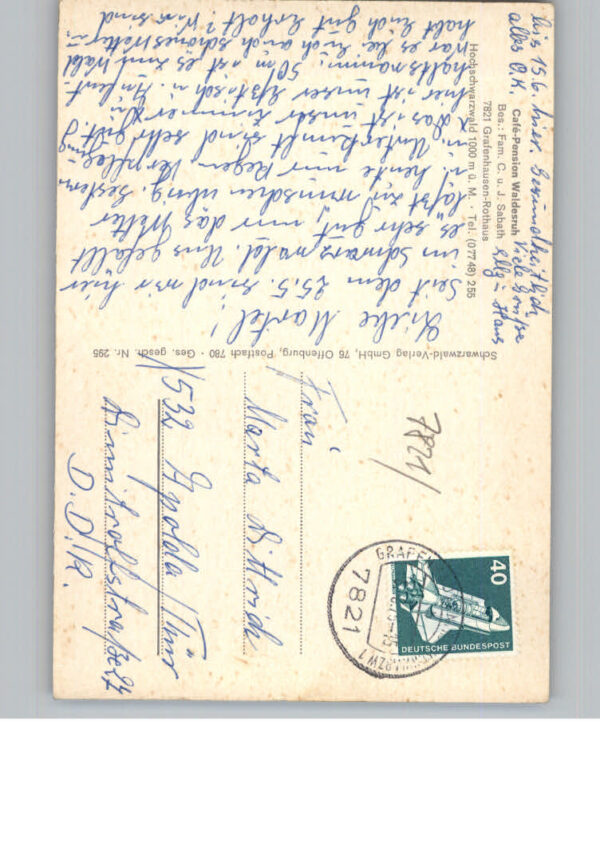 Café-Pension Waldesruh
Bes.: Fam. C. u. J. Sabath
7821 Grafenhausen-Rothaus
Hochschwarzwald 1000 m ü. M. · Tel. (07748) 255
Liebe Martel!
Seit dem 25.5. sind wir hier
im Schwarzwald. Uns gefällt
es sehr gut, nur das Wetter
läßt zu wünschen übrig. Gestern
u. heute nur Regen. Verpflegung
u. Unterkunft sind sehr gut.
Das ist unser Zimmer
hier ist unser Esstisch u.
haltsraum. 50 m ist es zum Wald
War es bei Euch auch schönes Wetter u.
habt Euch gut erholt? Wir sind
bis 15.6. hier. Gesundheitlich
alles O.K. Viele Grüße
Elly u. Hans
Schwarzwald-Verlag GmbH, 76 Offenburg, Postfach 780 · Ges. gesch. Nr. 295
Frau
Marta Dittrich
532 Apolda/Thür
Dimitroffstraße 27
D.D.R.
7821/
40
DEUTSCHE BUNDESPOST
7821